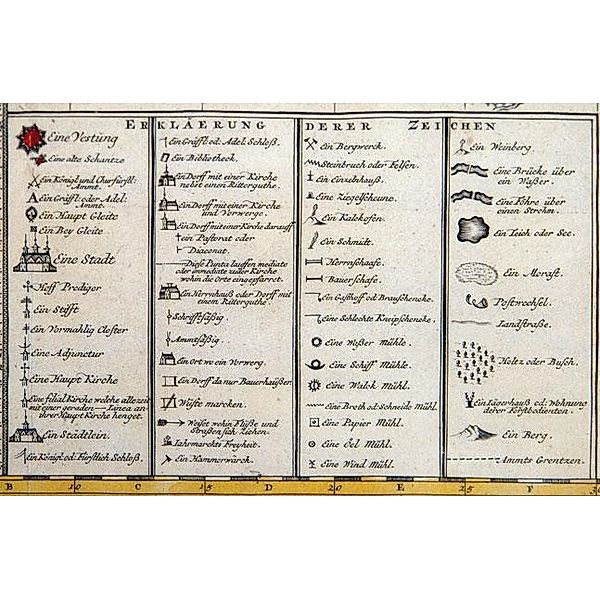 ERKLÄERUNG DERER ZEICHEN
Eine Vestüng
Eine alte Schantze
Ein Königl und Churfürstl:
Ammt.
Ein Gräffl: oder Adel:
Ammt.
Ein Haupt Gleite
Ein Bey Gleite
Eine Stadt
Hoff Prediger
Ein Stifft
Ein Vormahlig Closter
Eine Adjunctur
Eine Haupt Kirche
Eine filial Kirche welche alle zeit
mit einer geraden Linea an
ihrer Haupt Kirche henget.
Ein Städtlein.
Ein Königl od: Fürstlich Schloß.
Ein Gräffl: od: Adel Schloß.
Ein Bibliotheck.
Ein Dorff mit einer Kirche
nebst einen Ritterguthe.
Ein Dorff mit einer Kirche
und Vorwerge.
Ein Dorff mit einer Kirche darauff
ein Pastorat oder
Diaconat.
Diese Punta lauffen mediate
oder immediate zuller Kirche
wohin die Orte eingepfarret.
Ein Herrnhauß oder Dorff mit
einem Ritterguthe
Schrifftsäßig
Ammtsäßig
Ein Ort wo ein Vorwerg.
Ein Dorff da nur Bauerhaüßer.
Wüste marcken.
Weiset wohin Flüße und
Straßen sich Ziehen.
Jahrmarckts Freyheit.
Ein Hammerwarck.
Ein Bergwerck.
Steinbruch oder Felsen.
Ein Einzelnhauß.
Eine Ziegelscheune.
Ein Kalckofen.
Ein Schmidt.
Herrnschaafe.
Bauerschafe.
Ein Gasthoff od: Brauschencke.
Eine Schlechte Kneipschencke.
Eine Waßer Mühle.
Eine Schiff Mühle.
Eine Walck Mühl.
eine Breth od: Schneide Mühl.
Eine Papier Mühl.
Eine Oel Mühl.
Eine Wind Mühl.
Ein Weinberg.
Eine Brücke über
ein Waßer.
Eine Föhre über
einen Strohm.
Ein Teich oder See.
Ein Morast.
Postwechsel.
Landstraße.
Holtz oder Busch.
Ein Jägerhauß od: Wohnung
derer Forstbedienten.
Ein Berg.
Ammts Grentzen.
B 10 C 15 D 20 E 25 F 30